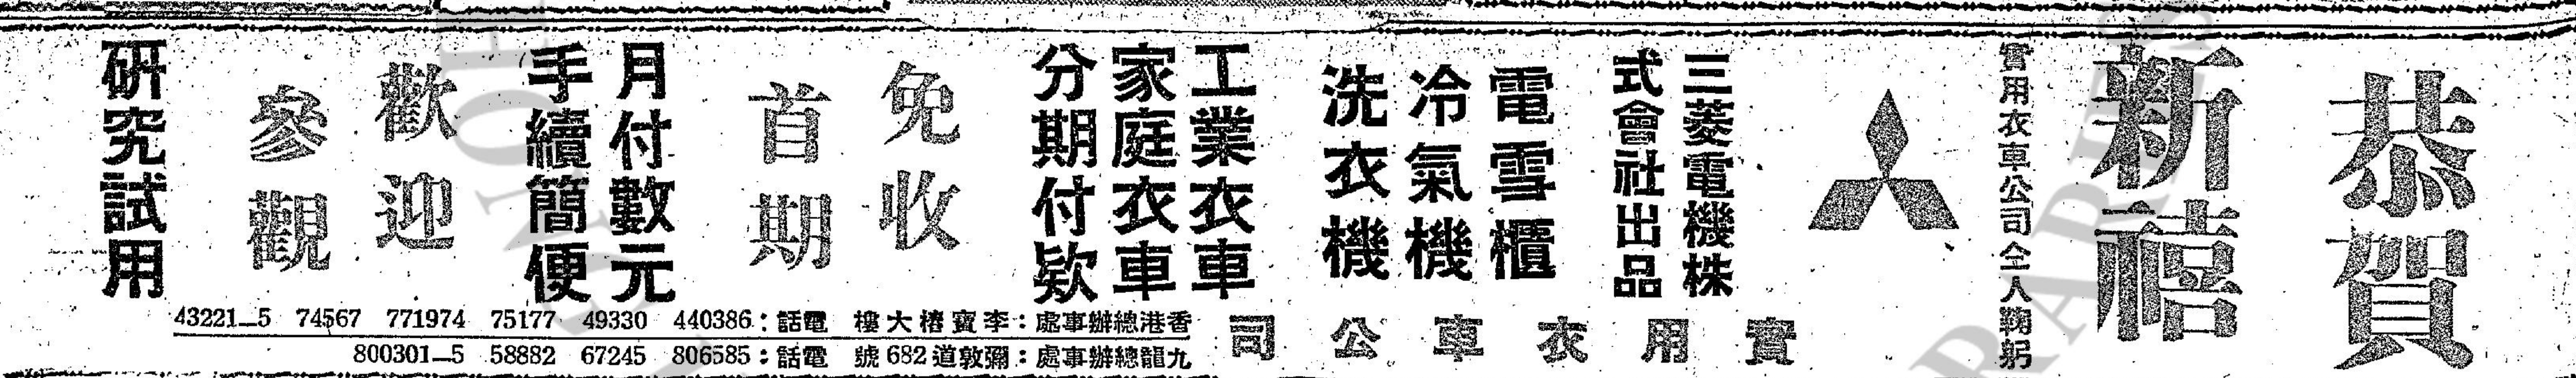 恭賀
新禧
實用衣車公司仝人鞠躬
三菱電機株
式會社出品
電雪櫃
冷氣機
洗衣機
實用衣車公司
工業衣車
家庭衣車
分期付欵
免收
首期
月付數元
手續簡便
歡迎
參觀
研究試用
香港總辦事處：李寳椿大樓 電話：440386 49330 75177 771974 74567 43221—5
九龍總辦事處：彌敦道682號 電話：806585 67245 58882 800301—5